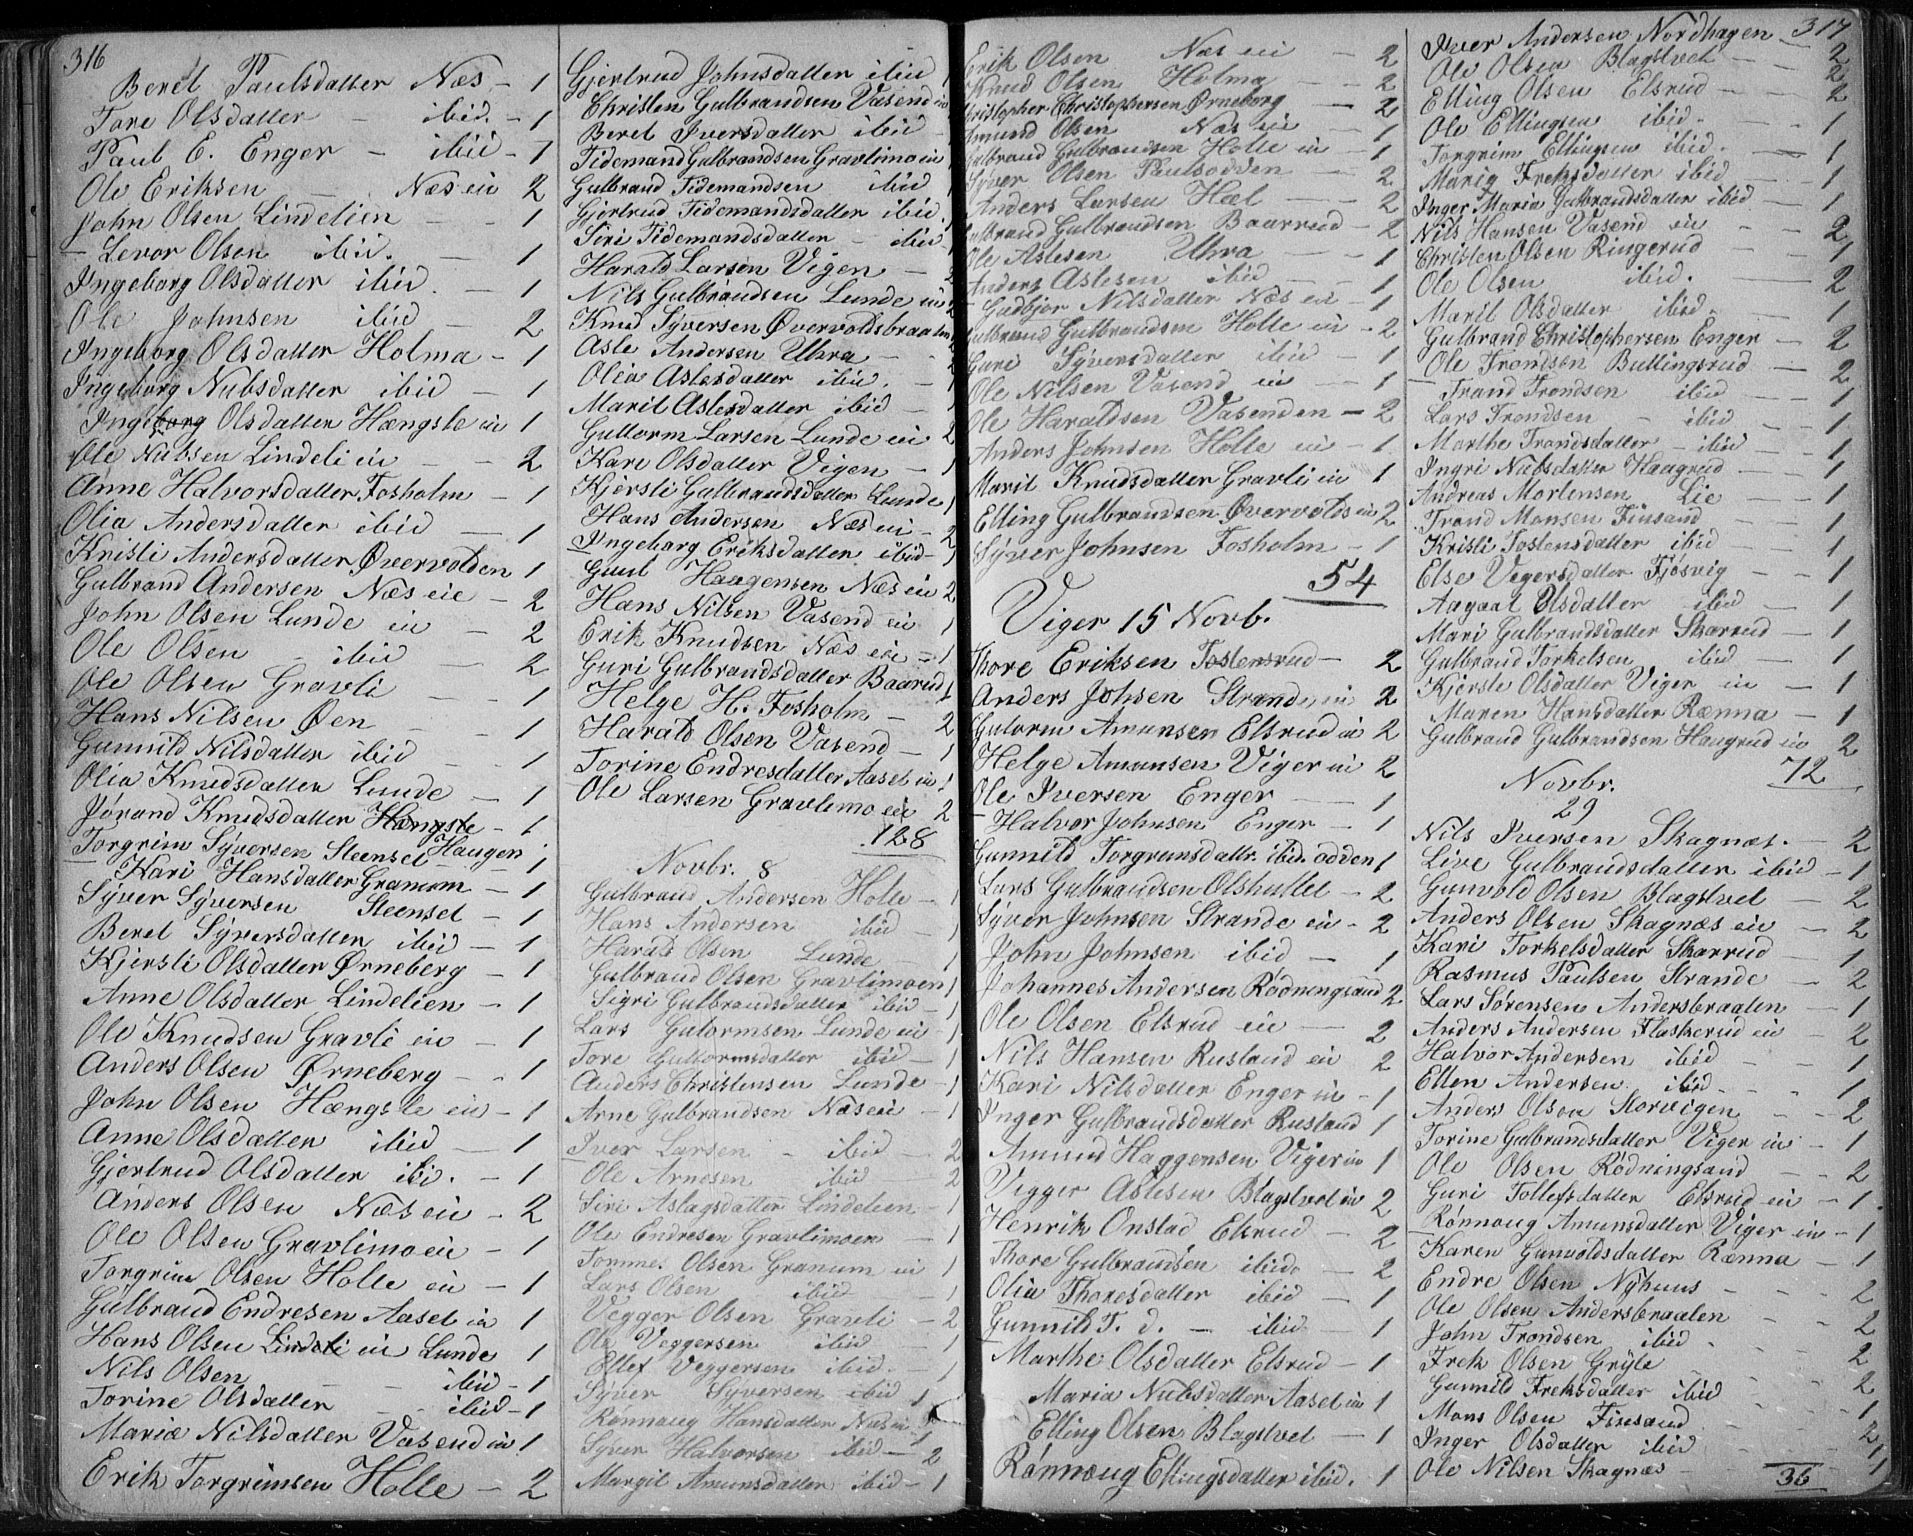 316
Beret Paulsdatter Næs - 1
Tore Olsdatter - ibid. - 1
Paul E. Enger - ibid - 1
Ole Eriksen - Næs eie 2
John Olsen Lindelien - 1
Levor Olsen ibid. - 1
Ingeborg Olsdatter ibid. - 1
Ole Johnsen ibid - 2
Ingeborg Olsdatter Holma - 1
Ingeborg Nubsdatter ibid - 1
Ingeborg Olsdatter Hængsle ei 1
Ole Nubsen Lindeli eie - 2
Anne Halvorsdatter Fosholm - 1
Olia Andersdatter ibid - 1
Kristi Andersdatter Øvervolden 1
Gulbrand Andersen Næs eie - 2
John Olsen Lunde eie - 2
Ole Olsen - ibid - 2
Ole Olsen Gravli - 1
Hans Nilsen Øen - 1
Gunnild Nilsdatter ibid - 1
Olia Knudsdatter Lunde - 1
Jørand Knudsdatter Hængsle - 1
Torgrim Syversen Steenset Haugen 1
Kari Hansdatter Granum - 1
Syver Syversen Steenset - 1
Beret Syversdatter ibid - 1
Kjersti Olsdatter Ørneberg - 1
Anne Olsdatter Lindelien - 1
Ole Knudsen Gravli ei - 1
Anders Olsen Ørneberg - 1
John Olsen Hængsle ei - 1
Anne Olsdatter ibid - 1
Gjertrud Olsdatter ibi. - 1
Anders Olsen Næs eie - 2
Ole Olsen Gravlimo eie - 1
Torgrim Olsen Holte ei - 1
Gulbrand Endresen Aaset ei 1
Hans Olsen Lindeli ei Lunde 1
Nils Olsen - ibid - 1
Torine Olsdatter - ibid - 1
Maria Nilsdatter Vasend ei 1
Erik Torgrimsen Holte - 2
Gjertrud Johnsdatter ibid 1
Christen Gulbrandsen Vasend ei
Beret Iversdatter ibid
Tidemand Gulbrandsen Gravlimo ei
Gulbrand Tidemandsen ibid 1
Gjertrud Tidemandsdatter ibid.
Siri Tidemandsdatter - ibid 1
Harald Larsen Vigen - 2
Nils Gulbrandsen Lunde ei 2
Knud Syversen Øvervoldsbraaten
Asle Andersen Uhra - 2
Olia Aslesdatter ibid. - 1
Marit Aslesdatter ibid - 1
Guttorm Larsen Lunde eie 2
Kari Olsdatter Vigen - 1
Kjersti Gulbrandsdatter Lunde 1
Hans Andersen Næs ei - 2
Ingeborg Eriksdatter ibid - 1
Guul Haagensen Næs ei 2
Hans Nilsen Vasend ei 1
Erik Knudsen Næs eie - 1
Guri Gulbrandsdatter Baarrud 1
Helge H. Fosholm - 2
Harald Olsen Vasend - 1
Torine Endresdatter Aaset ei 1
Ole Larsen Gravlimo eie 2
128
Novbr. 8
Gulbrand Andersen Holte - 1
Hans Andersen ibid - 1
Harald Olsen Lunde 1
Gulbrand Olsen Gravlimoen 1
Sigri Gulbrandsdatter ibid - 1
Lars Gutormsen Lunde ei - 1
Tore Guttormsdatter ibid - 1
Anders Christensen Lunde - 1
Arne Gulbrandsen Næs eie - 1
Iver Larsen - ibid - 2
Ole Arnesen ibid - 2
Siri Aslagsdatter Lindelien - 1
Ole Endresen Gravlimoen - 1
Tommes Olsen Granum ei 1
Lars Olsen ibid - 1
Vegger Olsen Gravli - 2
Ole Veggersen ibid - 1
Ellef Veggersen ibid. 1
Syver Syversen ibid 1
Rønnaug Hansdatter Næs ei 1
Syver Halvorsen ibid - 2
Margit Amunsdatter ibid - 1
Erik Olsen Næs eie - 2
Knud Olsen Holma - 2
Christopher Christophersen Ørneborg - 2
Amund Olsen Næs ei - 1
Gulbrand Gulbrandsen Holte ei - 1
Syver Olsen Paulsodden - 2
Anders Larsen Hæl - 2
Gulbrand Gulbrandsen Baarrud - 2
Ole Aslesen Uhra - 1
Anders Aslesen ibid - 1
Gudbjør Nilsdatter Næs ei - 1
Gulbrand Gulbrandsen Holte ei - 2
Guri Syversdatter ibid - 1
Ole Nilsen Vasend ei - 1
Ole Haraldsen Vasenden - 2
Anders Johnsen Holte ei - 1
Marit Knudsdatter Gravli ei 1
Elling Gulbrandsen Øvervolds ei 2
Syver Johnsen Fosholm - 1
54
Viger 15 Novb.
Thore Eriksen Tostensrud - 2
Anders Johsen Strande ei 2
Gutorm Amunsen Elsrud ei 2
Helge Amunsen Viger ei 2
Ole Iversen Enger - 1
Halvor Johnsen Enger - 1
Gunnild Torgrimsdattr. ibid. odden 1
Lars Gulbrandsen Olshullet - 2
Syver Johnsen Strande ei - 2
John Johnsen ibid - 1
Johannes Andersen Rødningsand 2
Ole Olsen Elsrud eie - 2
Nils Hansen Rustand ei 2
Kari Nilsdatter Enger ei - 1
Inger Gulbrandsdatter Rustand 1
Amund Haggensen Viger ei 1
Vigger Aslesen Blagstvet ei 2
Henrik Onstad Elsrud - 2
Thore Gulbrandsen ibid. - 2
Olia Thoresdatter ibid - 1
Gunnild T. d. - ibid - 1
Marthe Olsdatter Elsrud - 1
Maria Nubsdatter Aaset ei 1
Elling Olsen Blagstvet - 1
Rønnaug Ellingsdatter ibid. 1
317
Iver Andersen Nordhagen - 2
Ole Olsen Blagstvet - 2
Elling Olsen Elsrud - 2
Ole Ellingsen ibid. - 1
Torgrim Ellingsen ibid. - 1
Maria Freksdatter ibid - 1
Inger Maria Gulbrandsdatter ibid - 1
Nils Hansen Vasend ei - 2
Christen Olsen Ringerud - 1
Ole Olsen ibid. - 2
Marit Olsdatter ibid. - 1
Gulbrand Christophersen Enger - 2
Ole Trondsen Bullingsrud - 2
Trond Trondsen ibid - 1
Lars Trondsen - ibid - 1
Marthe Trondsdatter - ibid - 1
Ingri Nubsdatter Haagrud - 1
Andreas Mortensen Lie - 1
Trond Monsen Finsand - 1
Kristi Tostensdatter ibid - 1
Else Vegersdatter Fjøsvig - 1
Aagaat Olsdatter ibid - 1
Mari Gulbrandsdatter Skarrud - 1
Gulbrand Torkelsen ibid - 1
Kjersti Olsdatter Viger ei - 1
Maren Hansdatter Rænna - 1
Gulbrand Gulbrandsen Haugrud ei 2
72
Novbr.
29
Nils Iversen Skagnæs. - 2
Live Gulbrandsdatter ibid - 1
Gunvold Olsen Blagstvet - 2
Anders Olsen Skagnæs ei - 2
Kari Torkelsdatter Skarrud - 1
Rasmus Paulsen Strande - 2
Lars Sørensen Andersbraaten - 1
Anders Andersen Flaskerud ei - 2
Halvor Andersen ibid - 1
Ellen Andersen ibid. - 1
Anders Olsen Storvigen - 2
Torine Gulbrandsdatter Viger ei - 1
Ole Olsen Rødningsand - 2
Guri Tollefsdatter Elsrud ei - 1
Rønnaug Amunsdatter Viger ei - 1
Karen Gunvoldsdatter Rænna - 1
Endre Olsen Nyhuus - 2
Ole Olsen Andersbraaten - 2
John Trondsen ibid - 2
Frek Olsen Gryte - 2
Gunnild Freksdatter ibid - 1
Mons Olsen Finsand 2
Inger Olsdatter ibid - 1
Ole Nilsen Skagnæs - 1
36